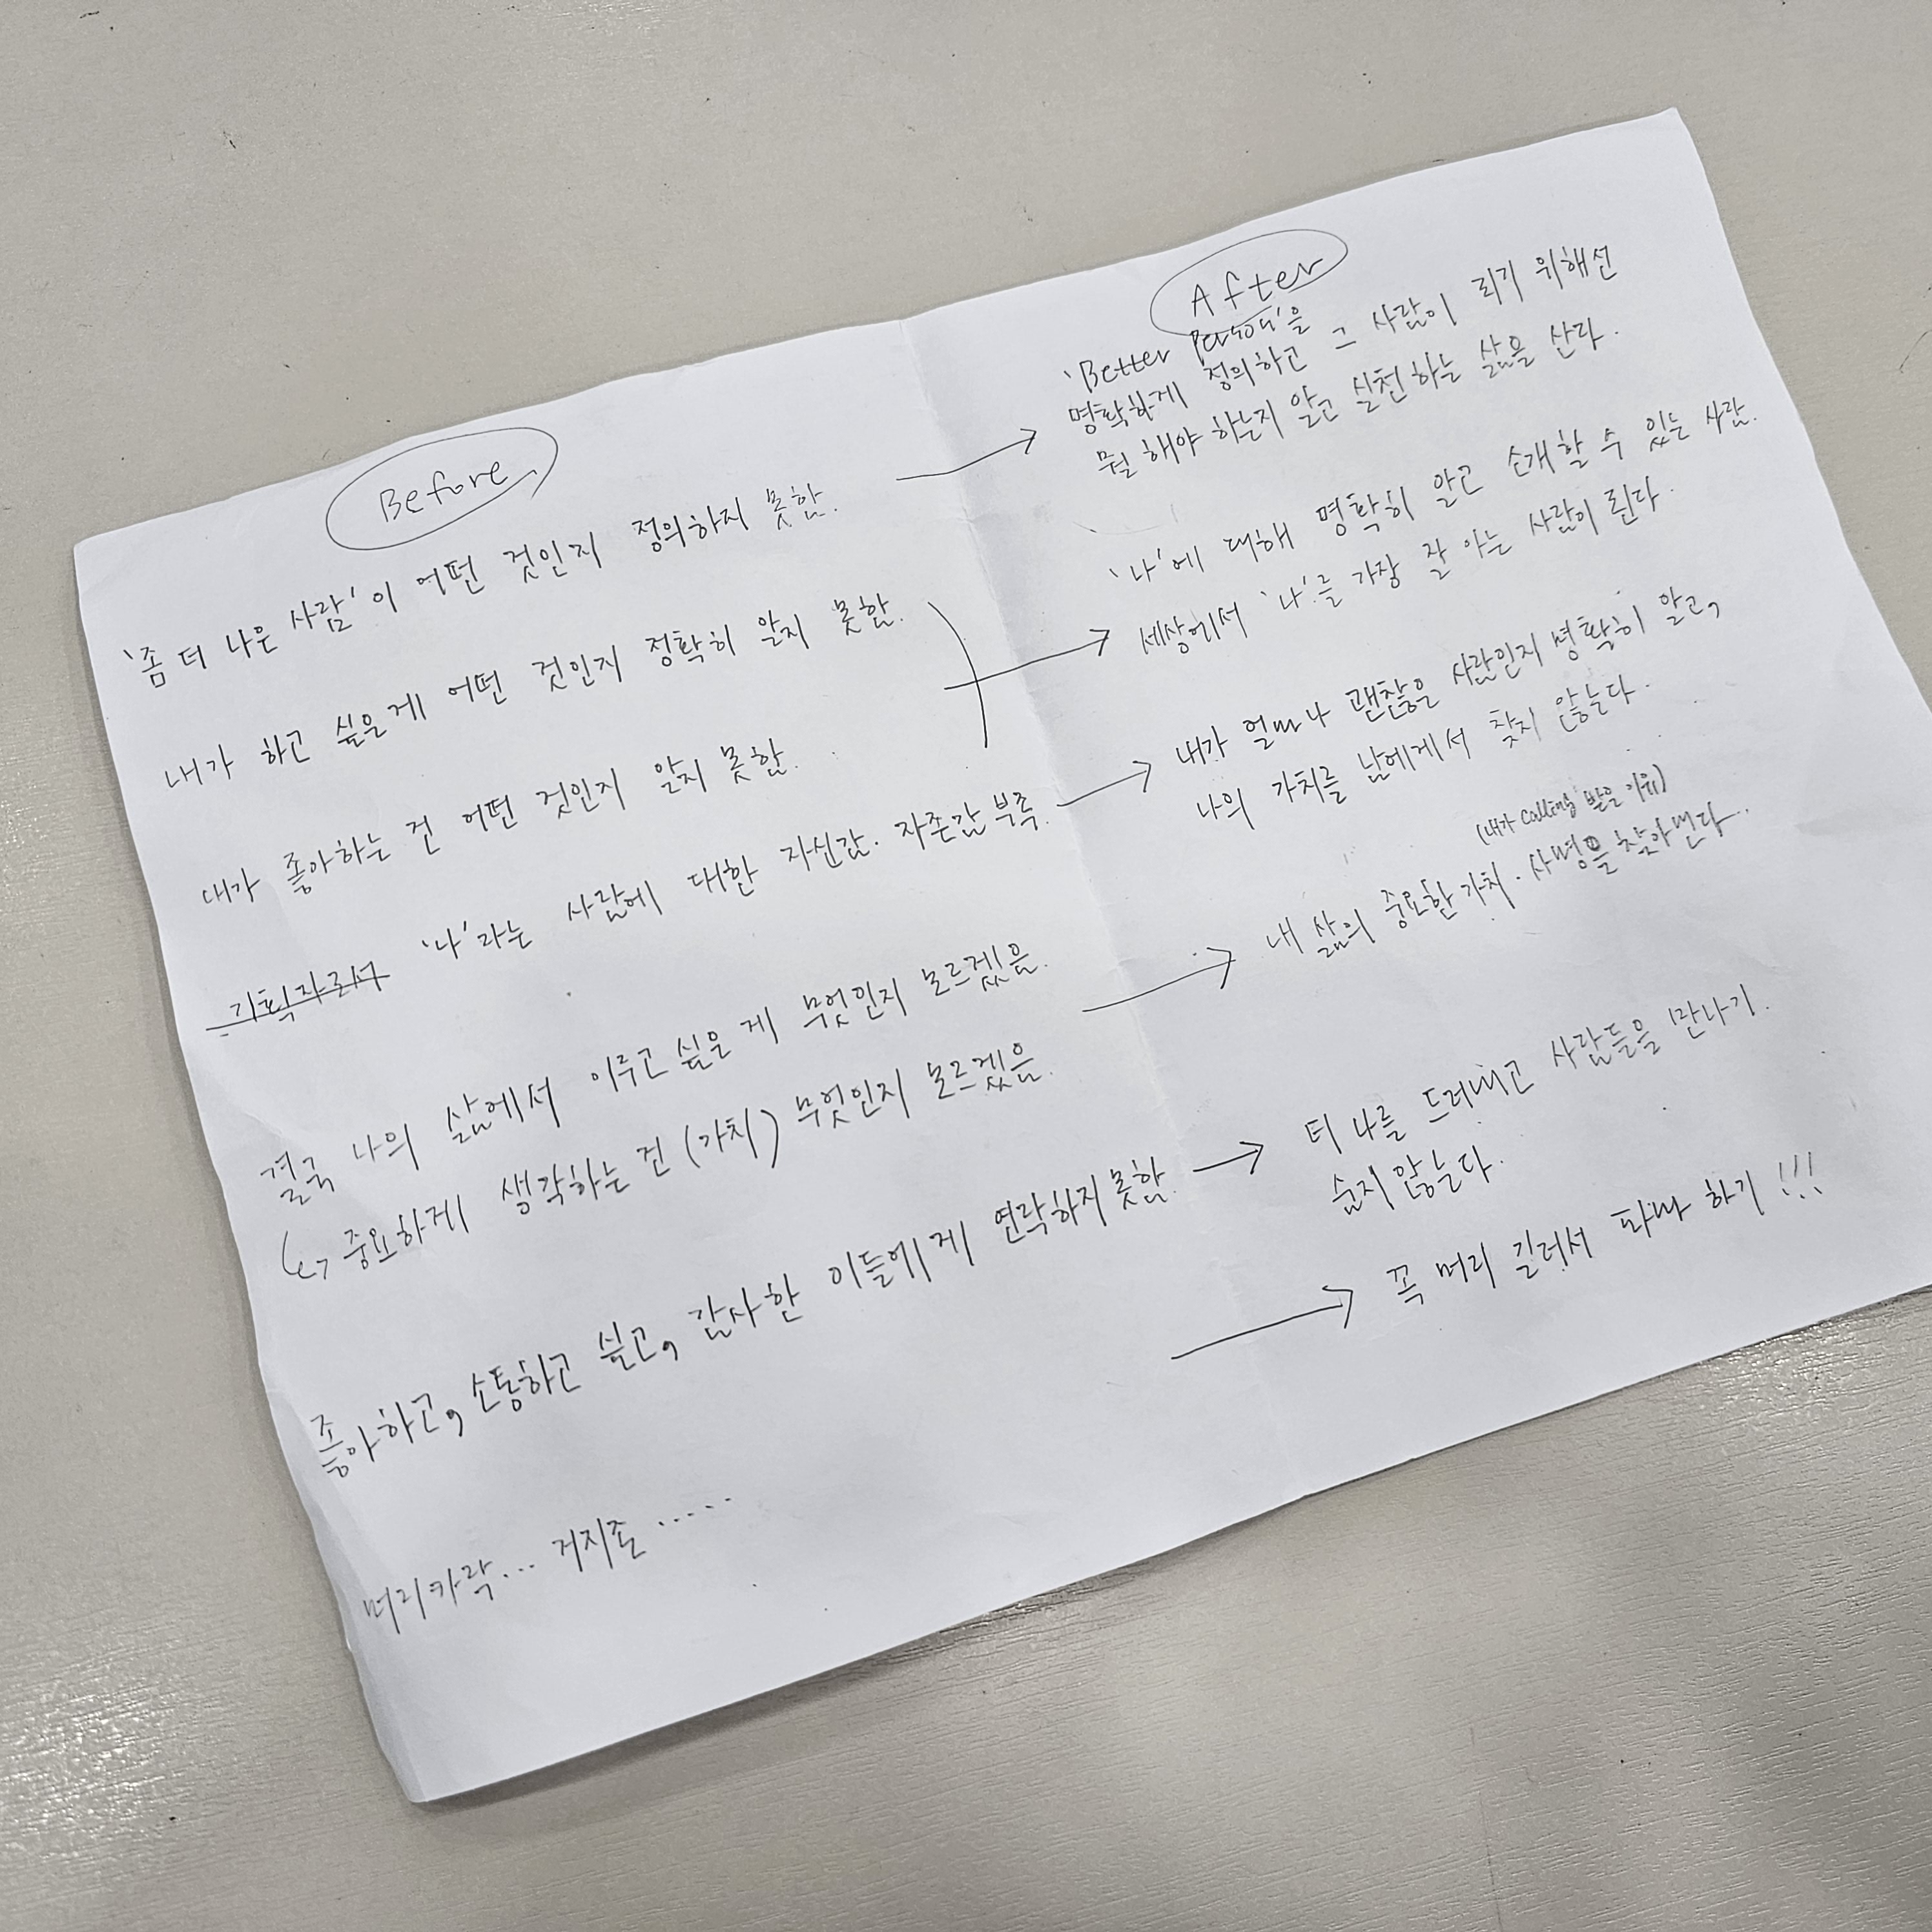 Before
'좀 더 나은 사람'이 어떤 것인지 정의하지 못함.
내가 하고 싶은게 어떤 것인지 정확히 알지 못함.
내가 좋아하는 건 어떤 것인지 알지 못함.
기획자로서 '나'라는 사람에 대한 자신감. 자존감 부족.
결국 나의 삶에서 이루고 싶은 게 무엇인지 모르겠음.
↳ 중요하게 생각하는 건 (가치) 무엇인지 모르겠음.
좋아하고, 소통하고 싶고, 감사한 이들에게 연락하지 못함.
머리카락... 거지존 .....
After
'Better Person'을
명확하게 정의하고 그 사람이 되기 위해선
뭘 해야 하는지 알고 실천하는 삶을 산다.
'나'에 대해 명확히 알고 소개할 수 있는 사람.
세상에서 '나'를 가장 잘 아는 사람이 된다.
내가 얼마나 괜찮은 사람인지 명확히 알고,
나의 가치를 남에게서 찾지 않는다.
(내가 calling 받은 이유)
내 삶의 중요한 가치. 사명을 찾아낸다..
더 나를 드러내고 사람들을 만나기.
숨지 않는다.
꼭 머리 길러서 파마 하기!!!